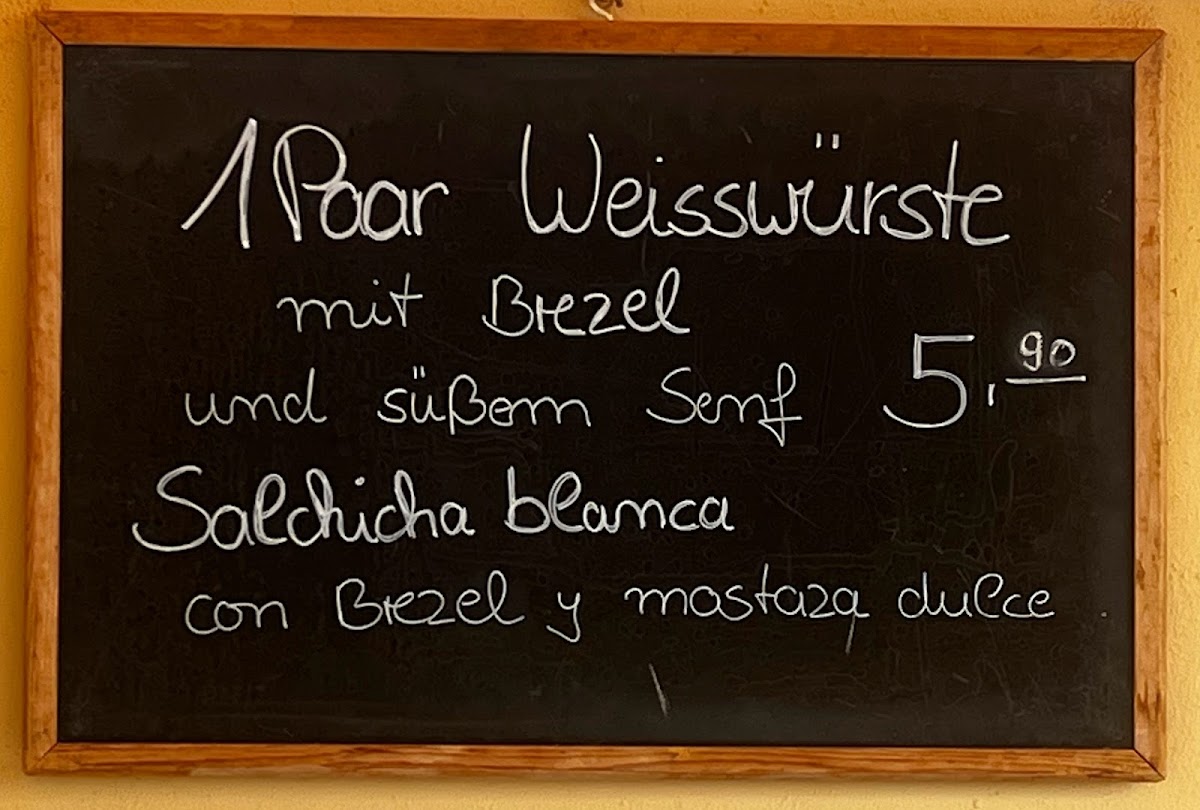 1 Paar Weisswürste
mit Brezel
und süßem Senf 5,90
Salchicha blanca
con Brezel y mostaza dulce